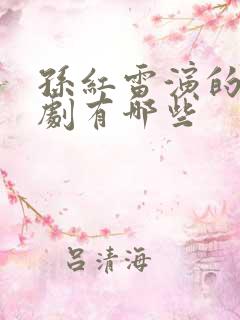 孫紅雷演的
劇有哪些
呂清海